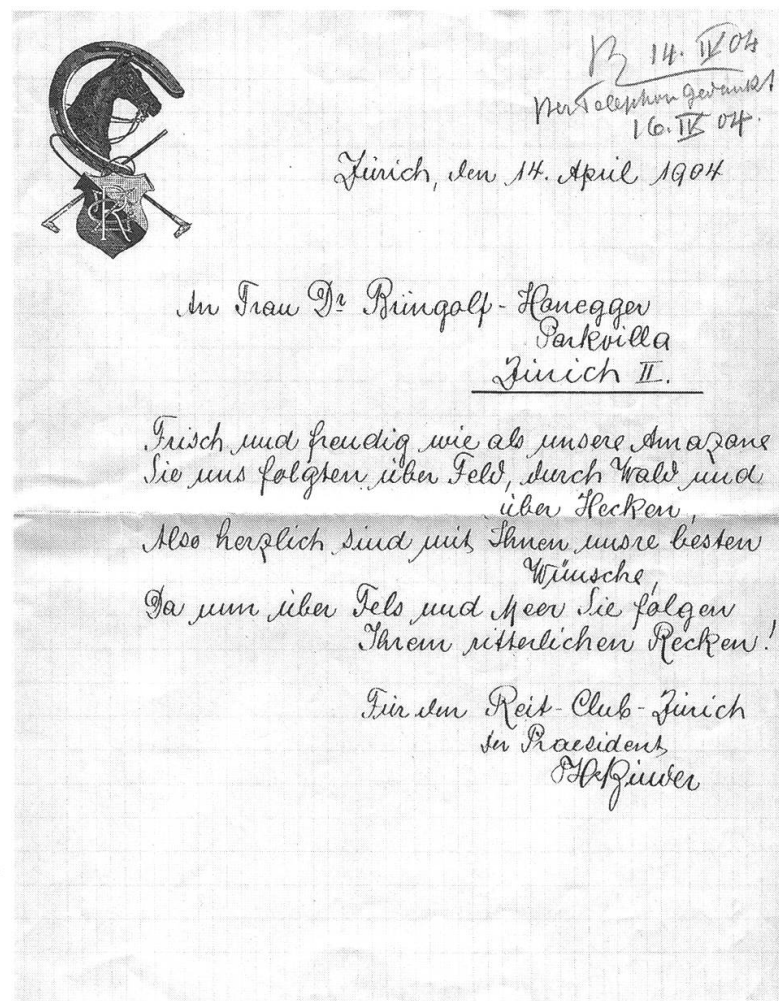 14. IV 04
per Telephon gedankt
16. IV 04.
Zürich, den 14. April 1904
An Frau Dr Bringolf-Honegger
Parkvilla
Zürich II.
Frisch und freudig wie als unsere Amazone
Sie uns folgten über Feld, durch Wald und
über Hecken,
Also herzlich sind mit Ihnen unsre besten
Wünsche,
Da nun über Fels und Meer Sie folgen
Ihrem ritterlichen Recken!
Für den Reit-Club-Zürich
der Praesident